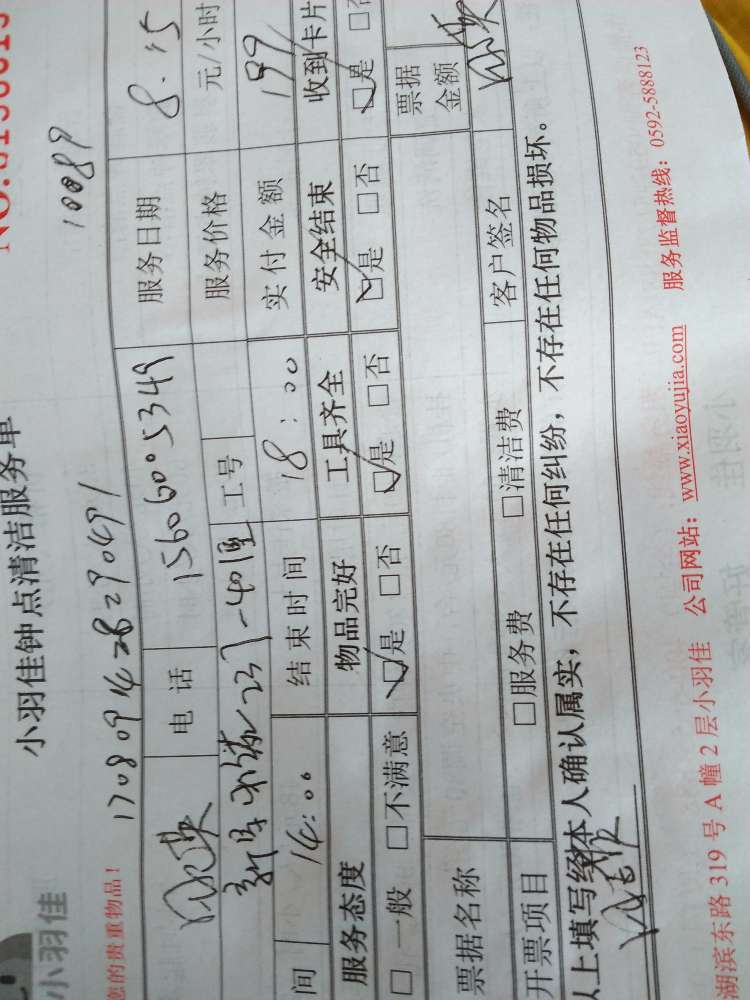 小羽佳
小羽佳钟点清洁服务单
您的贵重物品!
1708091428290491
10089
电话 15606005349 服务日期 8.15
237-401室 工号 服务价格 元/小时
间 14:00 结束时间 18:00 实付金额 199
服务态度 物品完好 工具齐全 安全结束 收到卡片
□一般 □不满意 □是 □否 □是 □否 □是 □否 □是
票据名称 票据金额
开票项目 □服务费 □清洁费 客户签名
以上填写经本人确认属实，不存在任何纠纷，不存在任何物品损坏。
湖滨东路 319 号 A 幢 2 层小羽佳 公司网站：www.xiaoyujia.com 服务监督热线：0592-5888123